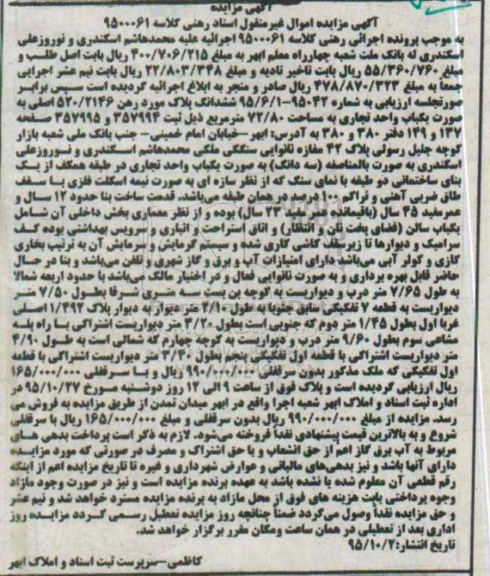 آگهی مزایده
آگهی مزایده اموال غیرمنقول اسناد رهنی کلاسه ۹۵۰۰۰۶۱
به موجب پرونده اجرائی رهنی کلاسه ۹۵۰۰۰۶۱ اجرائیه علیه محمدهاشم اسکندری و نوروزعلی
اسکندری له بانک ملت شعبه چهارراه معلم ابهر به مبلغ ۴۰۰/۷۰۶/۲۱۵ ریال بابت اصل طلب و
مبلغ ۵۵/۳۶۰/۷۶۰ ریال بابت تاخیر تادیه و مبلغ ۲۲/۸۰۳/۳۴۸ ریال بابت نیم عشر اجرایی
جمعاً به مبلغ ۴۷۸/۸۷۰/۳۲۳ ریال صادر و منجر به ابلاغ اجرائیه گردیده است سپس برابر
صورتجلسه ارزیابی به شماره ۹۵۰۴۲-۹۵/۶/۱ ششدانگ پلاک مورد رهن ۵۲۰/۲۱۴۶ اصلی به
صورت یکباب واحد تجاری به مساحت ۷۲/۸۰ مترمربع ذیل ثبت ۳۵۷۹۹۴ و ۳۵۷۹۹۵ صفحه
۱۳۷ و ۱۴۹ دفتر ۳۸۰ و ۳۸۰ به آدرس: ابهر-خیابان امام خمینی- جنب بانک ملی شعبه بازار
کوچه جلیل رسولی پلاک ۴۲ مغازه نانوایی سنگکی ملکی محمدهاشم اسکندری و نوروزعلی
اسکندری به صورت بالمناصفه (سه دانگ) به صورت یکباب واحد تجاری در طبقه همکف از یک
بنای ساختمانی دو طبقه با نمای سنگ که از نظر سازه ای به صورت نیمه اسکلت فلزی با سقف
طاق ضربی آهنی و تراکم صددرصد در همان طبقه می‌باشد. قدمت ساخت بنا حدود ۱۲ سال و
عمرمفید ۳۵ سال (باقیمانده عمرمفید ۲۳ سال) بوده و از نظر معماری بخش داخلی آن شامل
یکباب سالن (فضای پخت نان و انتظار) و اتاق استراحت و انباری و سرویس بهداشتی بوده کف
سرامیک و دیوارها تا زیرسقف کاشی کاری شده و سیستم گرمایش و سرمایش آن به ترتیب بخاری
گازی و کولر آبی می‌باشد دارای امتیازات آب و برق و گاز شهری و تلفن می‌باشد و بنا در حال
حاضر قابل بهره برداری و به صورت نانوایی فعال و در اختیار مالک می‌باشد با حدود اربعه شمالا
به طول ۷/۶۵ متر درب و دیواریست به کوچه بن بست سه متری شرقا بطول ۷/۵۰ متر
دیواریست به قطعه ۷ تفکیکی سابق جنوبا به طول ۳/۱۰ متر دیوار به دیوار پلاک ۱/۴۹۲ اصلی
غربا اول بطول ۱/۴۵ متر دوم که جنوبی است بطول ۳/۲۰ متر دیواریست اشتراکی با راه پله
مشاعی سوم بطول ۹/۶۰ متر درب و دیواریست به کوچه چهارم که شمالی است به طول ۴/۹۰
متر دیواریست اشتراکی با قطعه اول تفکیکی پنجم بطول ۳/۳۰ متر دیواریست اشتراکی با قطعه
اول تفکیکی که ملک مذکور بدون سرقفلی ۹۹۰/۰۰۰/۰۰۰ ریال و با سرقفلی ۱۶۵/۰۰۰/۰۰۰
ریال ارزیابی گردیده است و پلاک فوق از ساعت ۹ الی ۱۲ روز دوشنبه مورخ ۹۵/۱۰/۲۷ در
اداره ثبت اسناد و املاک ابهر شعبه اجرا واقع در ابهر میدان تمدن از طریق مزایده به فروش می
رسد. مزایده از مبلغ ۹۹۰/۰۰۰/۰۰۰ ریال بدون سرقفلی و مبلغ ۱۶۵/۰۰۰/۰۰۰ ریال با سرقفلی
شروع و به بالاترین قیمت پیشنهادی نقداً فروخته می‌شود. لازم به ذکر است پرداخت بدهی های
مربوط به آب برق گاز اعم از حق انشعاب و یا حق اشتراک و مصرف در صورتی که مورد مزایده
دارای آنها باشد و نیز بدهی‌های مالیاتی و عوارض شهرداری و غیره تا تاریخ مزایده اعم از اینکه
رقم قطعی آن معلوم شده یا نشده باشد به عهده برنده مزایده است و نیز در صورت وجود مازاد
وجوه پرداختی بابت هزینه های فوق از محل مازاد به برنده مزایده مسترد خواهد شد و نیم عشر
و حق مزایده نقداً وصول می‌گردد ضمناً چنانچه روز مزایده تعطیل رسمی گردد مزایده روز
اداری بعد از تعطیلی در همان ساعت ومکان مقرر برگزار خواهد شد.
تاریخ انتشار: ۹۵/۱۰/۲
کاظمی-سرپرست ثبت اسناد و املاک ابهر